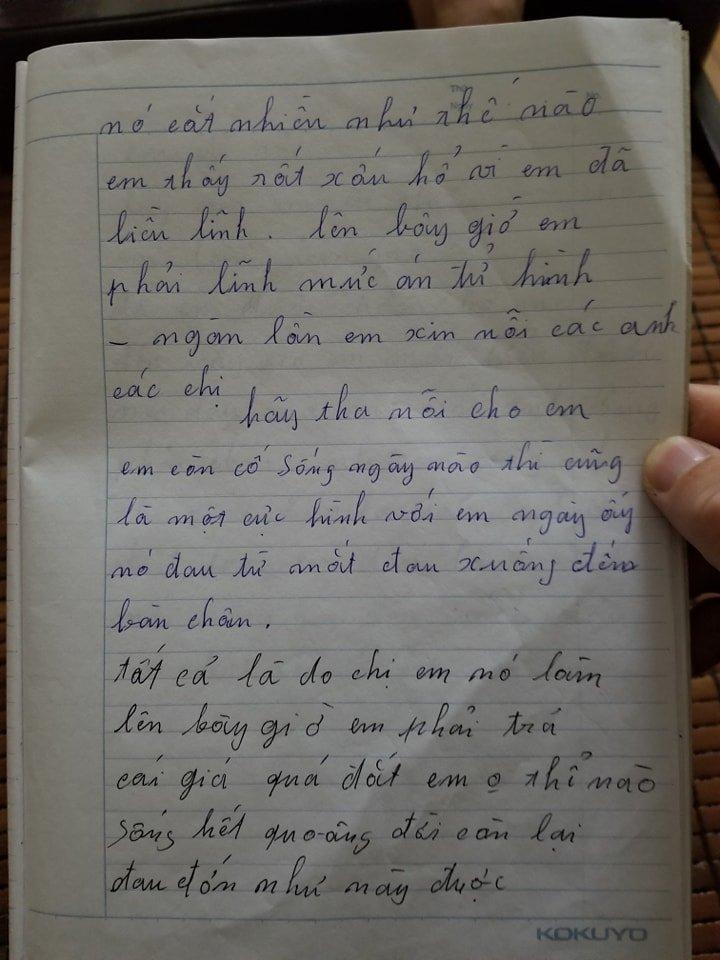 Thứ
Ngày
No.
nó cất nhiều như thế nào
em thấy rất xấu hổ vì em đã
liều lĩnh. lên bây giờ em
phải lĩnh mức án tử hình
- ngàn lần em xin nỗi các anh
các chị
hãy tha nỗi cho em
em còn cố sống ngày nào thì cũng
là một cực hình với em ngày ấy
nó đau từ mắt đau xuống đến
bàn chân.
tất cả là do chị em nó làm
lên bây giờ em phải trả
cái giá quá đắt em o thể nào
sống hết quoãng đời còn lại
đau đớn như này được
KOKUYO